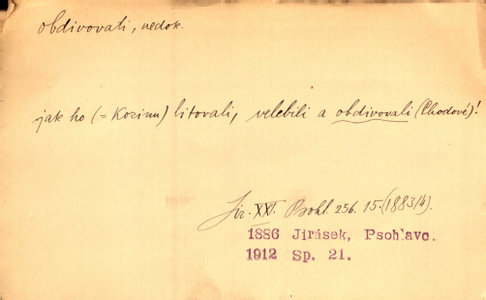 obdivovati, nedok.
jak ho (= Kozinu) litovali, velebili a obdivovali (Chodové)!
Jir. XXI. Psohl. 256. 15. (1883/4).
1886 Jirásek, Psohlavc.
1912 Sp. 21.